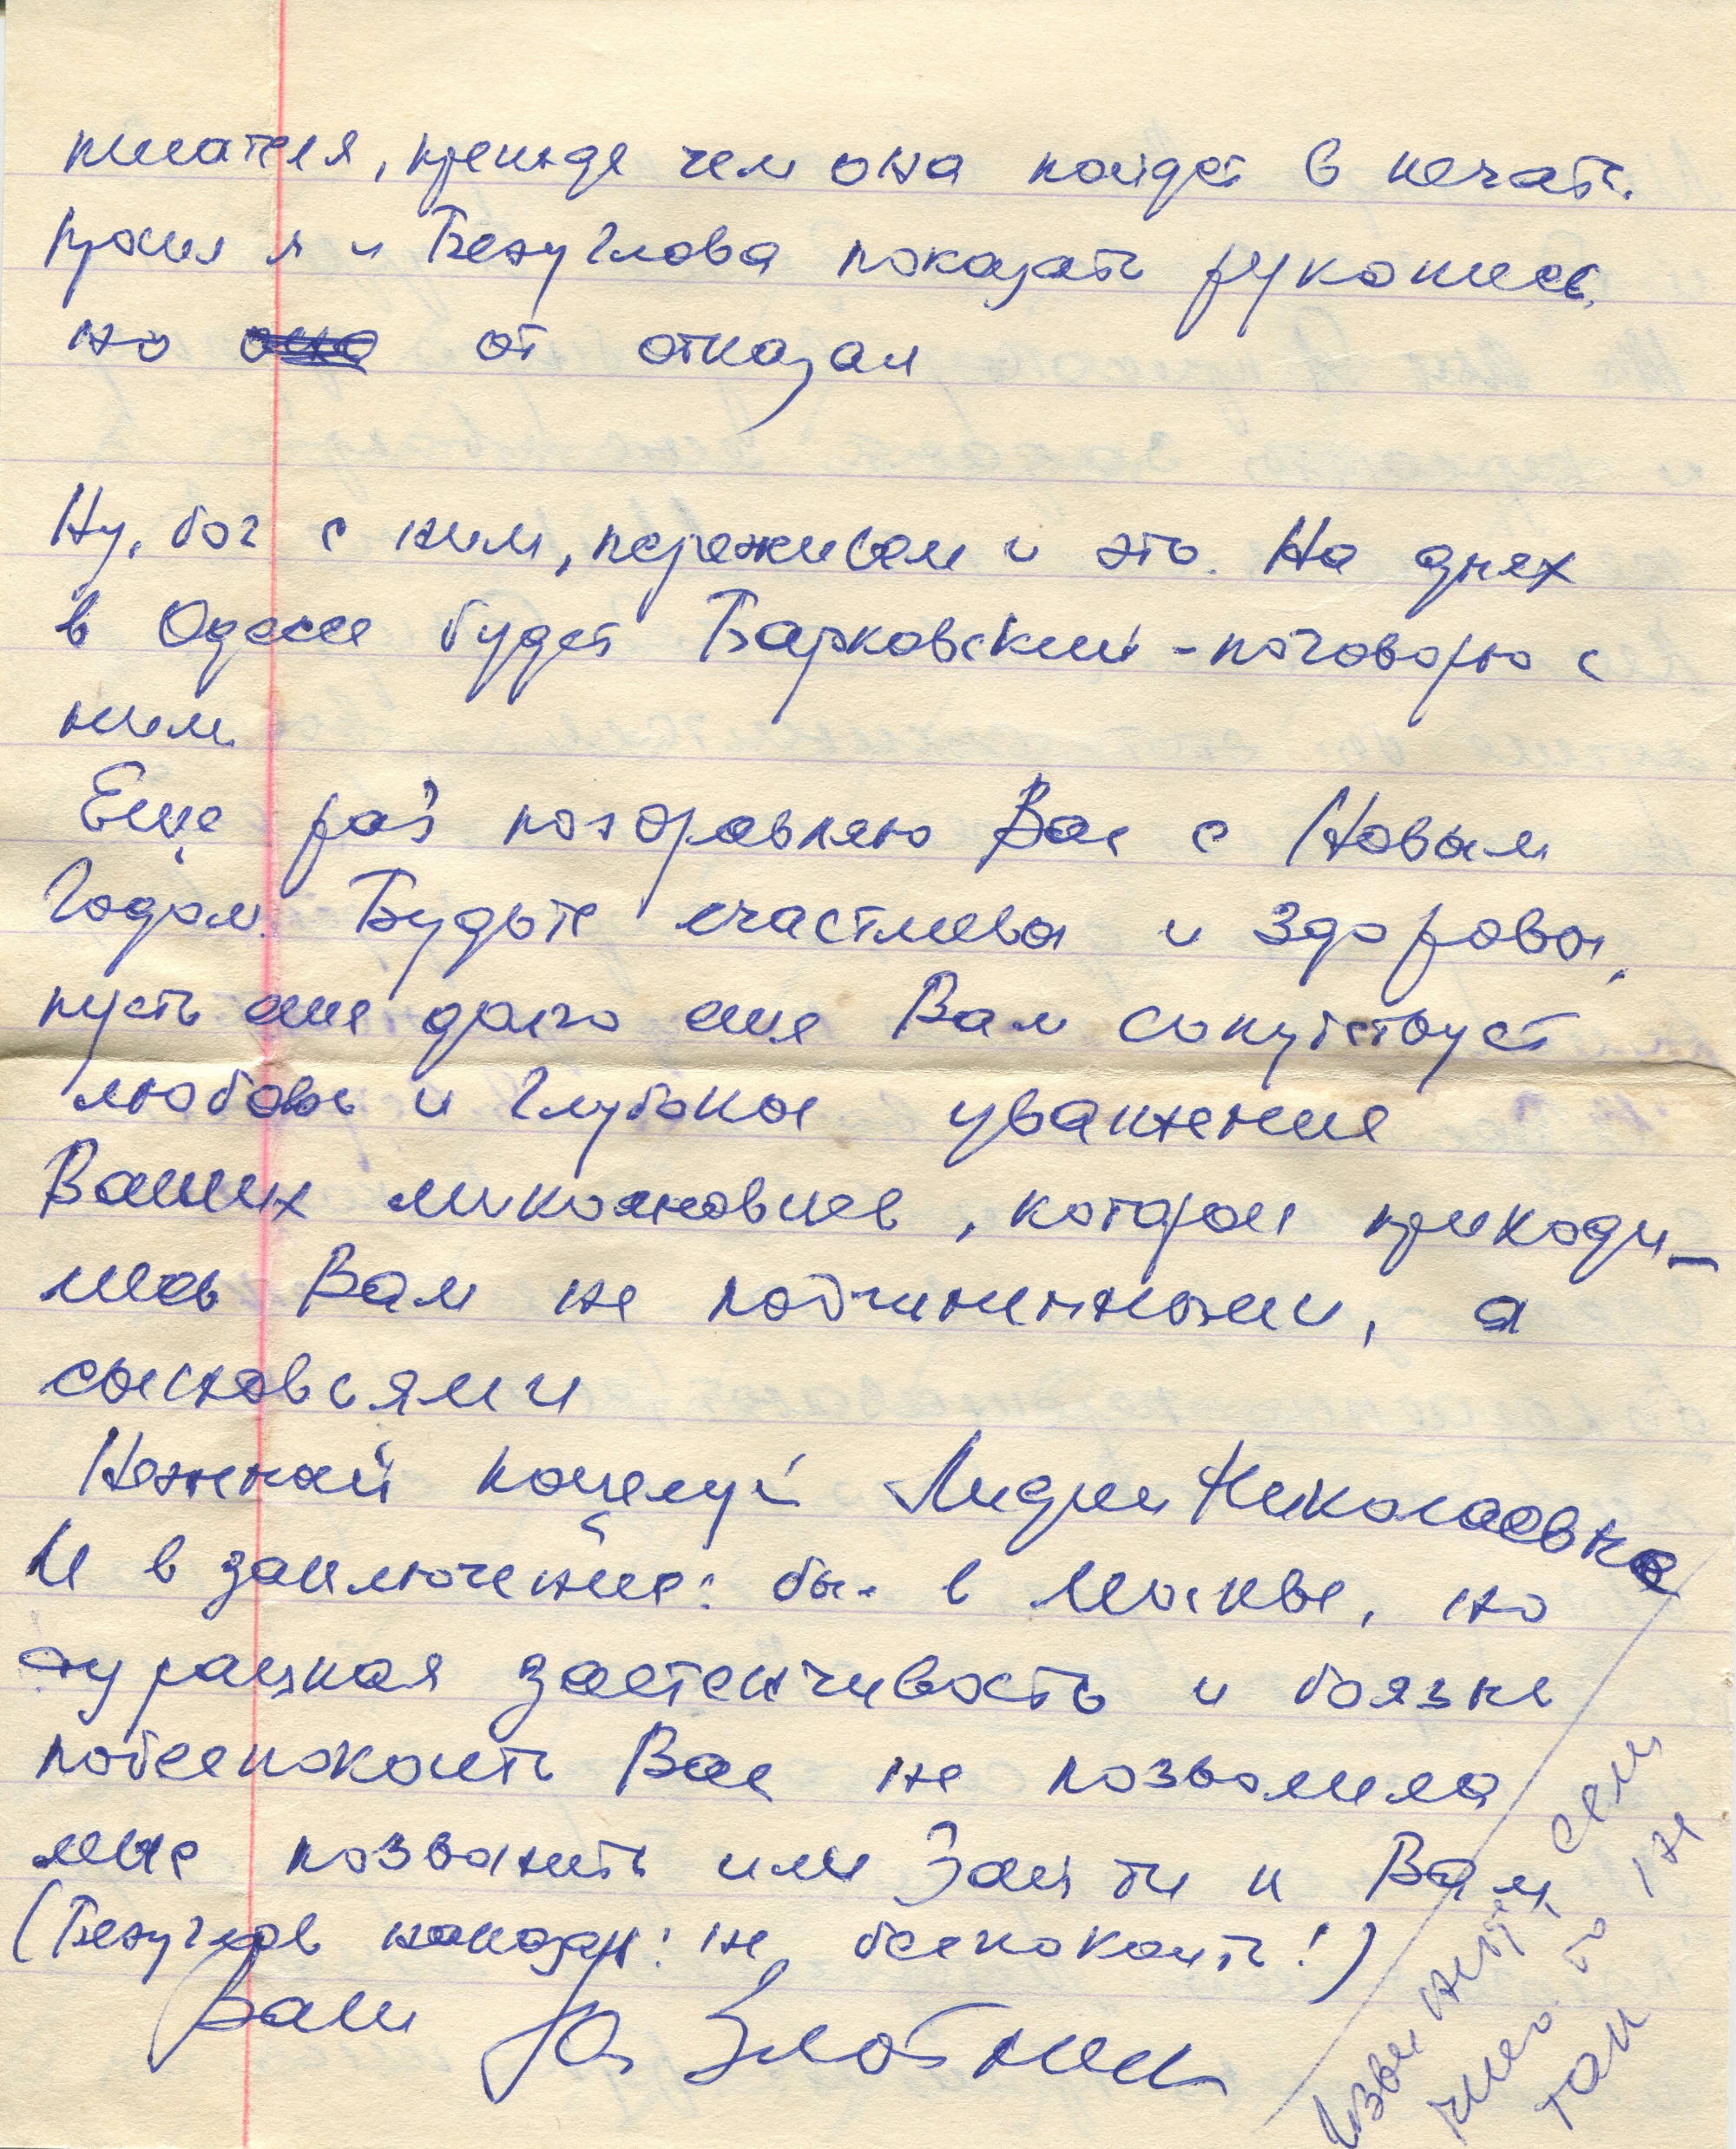 писателя, прежде чем она пойдет в печать.
Просил я и Безуглова показать рукопись,
но от отказал
Ну, бог с ним, переживем и это. На днях
в Одессе будет Барковский - поговорю с
ним.
Еще раз поздравляю Вас с Новым
Годом. Будьте счастливы и здоровы,
пусть еще долго еще Вам сопутствует
любовь и глубокое уважение
Ваших микояновцев, которые приходи-
лись Вам не подчиненными, а
сыновьями
Нежный поцелуй Лидии Николаевне
И в заключение: был в Москве, но
дурацкая застенчивость и боязнь
побеспокоить Вас не позволила
мне позвонить или зайти к Вам
(Безуглов наказал: не беспокоить!)
Ваш Ю. Злотник
Извините, если
что то не
так